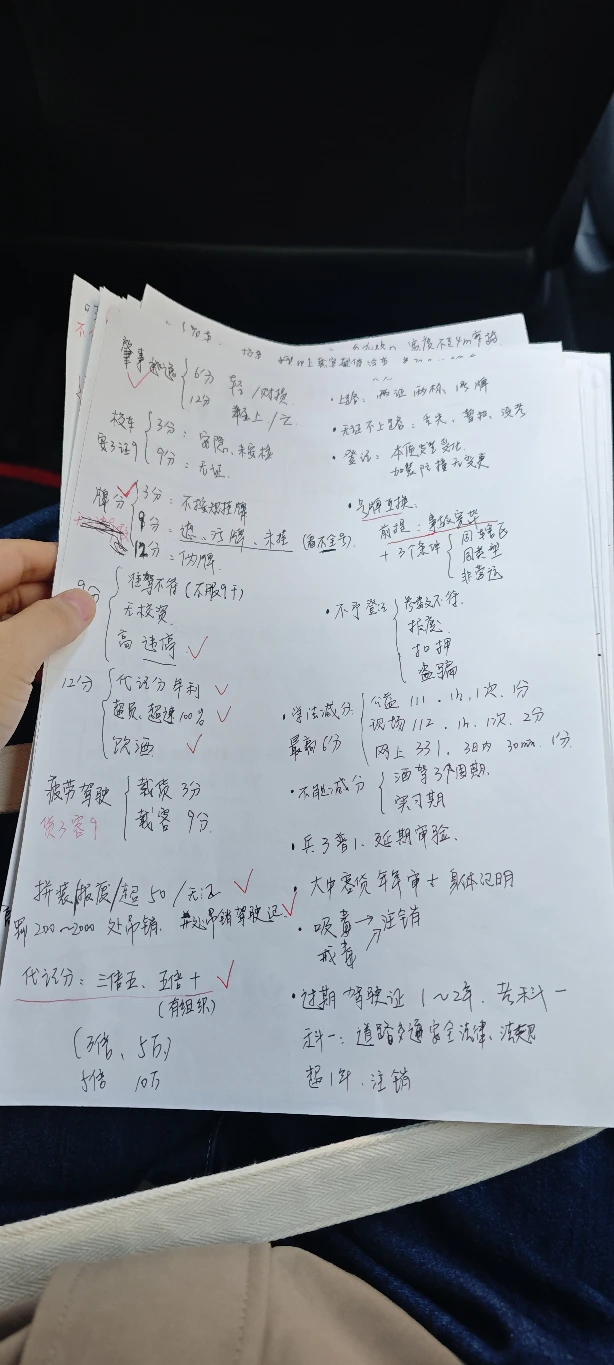 宽度不足4m窄路
肇事逃逸
6分 轻/财损
12分 轻上/亡
校车
实习证9
3分:
9分:无证.
牌分
3分:不按规挂牌
9分:遮、污牌、未挂(看不全号)
12分:伪牌.
9分
准驾不符(不服9了)
无校资
高 违停
12分
代记分牟利
超员、超速100%
饮酒
疲劳驾驶
货3客9
载货 3分
载客 9分
拼装/报废/超50/无证
罚200~2000 处吊销. 并处吊销驾驶证.
代记分:三倍五、五倍十
(有组织)
(3倍、5万)
5倍 10万
·上路:两证两标,号牌
·无证不上路:丢失、暂扣、没考
·登记:
加装防撞无变更
·号牌互换.
前提:事故完毕
+3个条件
同辖区
同类型
非营运
·不予登记
参数不符.
报废.
扣押
盗骗
·学法减分
最高6分
公益 111. 1h,1次,1分
现场 112. 1h. 1次. 2分
网上 331. 3日内 30min. 1分.
·不能减分
酒驾3个周期.
实习期
·兵3普1、延期审验、
·大中客货年年审+身体证明
·吸毒→注销
戒毒
·过期驾驶证 1~2年. 考科一
科一:道路交通安全法律、法规
超1年.注销